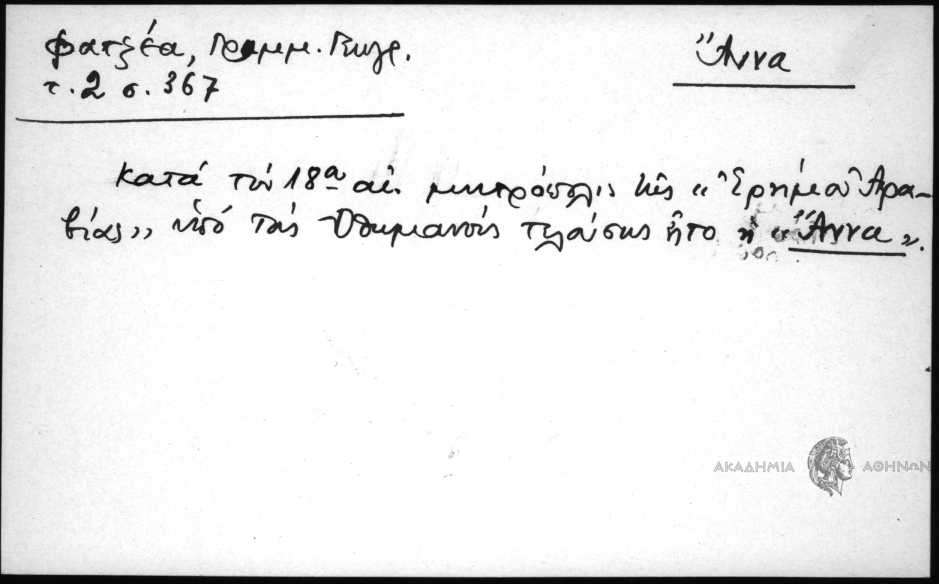 Φατζέα, Γραμμ. Γεωγρ.
τ. 2 σ. 367
Ἄννα
Κατά τόν 18ον αἰ. μητρόπολις τῆς «Ἐρήμου Ἀρα-
βίας» ὑπό τούς Ὀθωμανούς τελούσης ἦτο ἡ «Ἄννα».
ΑΚΑΔΗΜΙΑ ΑΘΗΝΩΝ